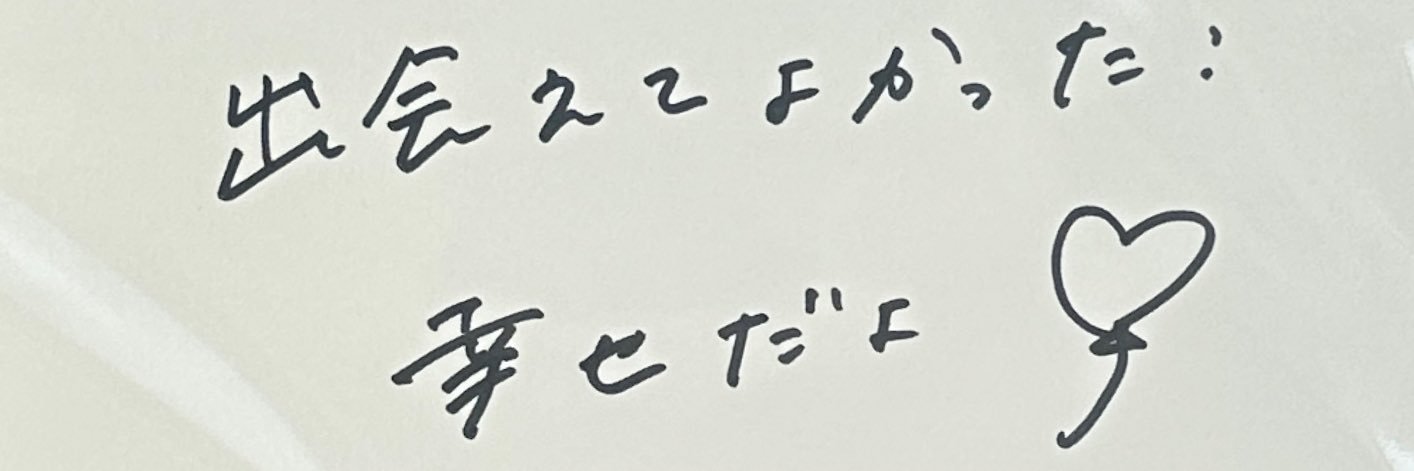 出会えてよかった:
幸せだよ